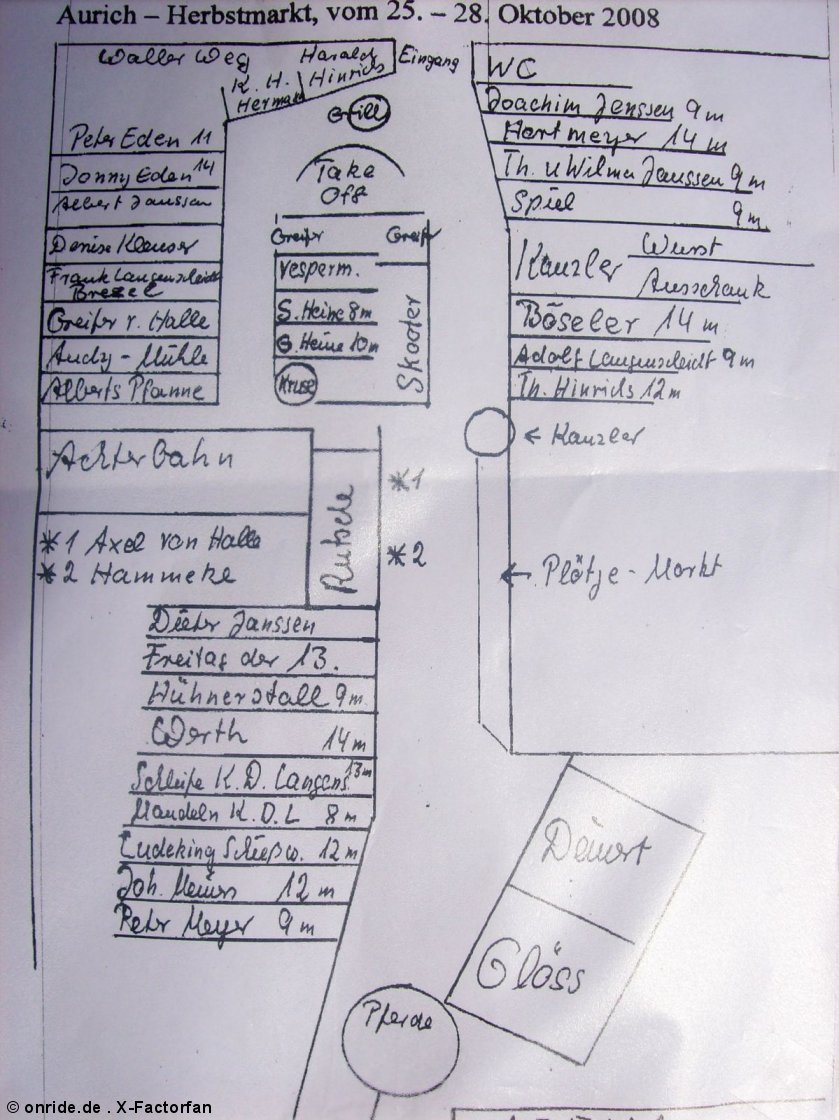 Aurich – Herbstmarkt, vom 25. – 28. Oktober 2008
Waller Weg
Harald
Hinrichs
K. H.
Hermann
Eingang
Grill
Peter Eden 11
Jonny Eden 14
Albert Janssen
Denise Klauser
Frank Langenscheidt
Brezel
Greifer v. Halle
Andy - Mühle
Alberts Pfanne
Take
Off
Greifer
Greifer
Vesperm.
S. Heine 8 m
G. Heine 10 m
Kruse
Skooter
WC
Joachim Janssen 9 m
Hartmeyer 14 m
Th. u Wilma Janssen 9 m
Spiel 9 m
Kanzler
Wurst
Ausschank
Böseler 14 m
Adolf Langenscheidt 9 m
Th. Hinrichs 12 m
← Kanzler
Achterbahn
Rutsche
*1
*2
*1 Axel von Halle
*2 Hammeke
← Plötze - Markt
Dieter Janssen
Freitag der 13.
Hühnerstall 9 m
Werth 14 m
Schleife K. D. Langens. 13 m
Mandeln K. D. L 8 m
Ludeking Schießw. 12 m
Joh. Meiners 12 m
Peter Meyer 9 m
Deuert
Glöss
Pferde
© onride.de . X-Factorfan